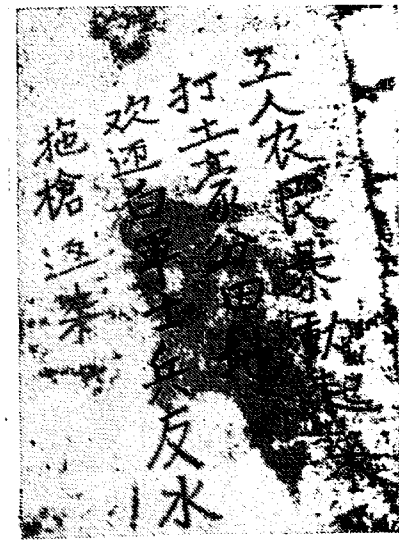 工人农民暴动起来
打土豪分田地
欢迎白军士兵反水
拖槍过来!